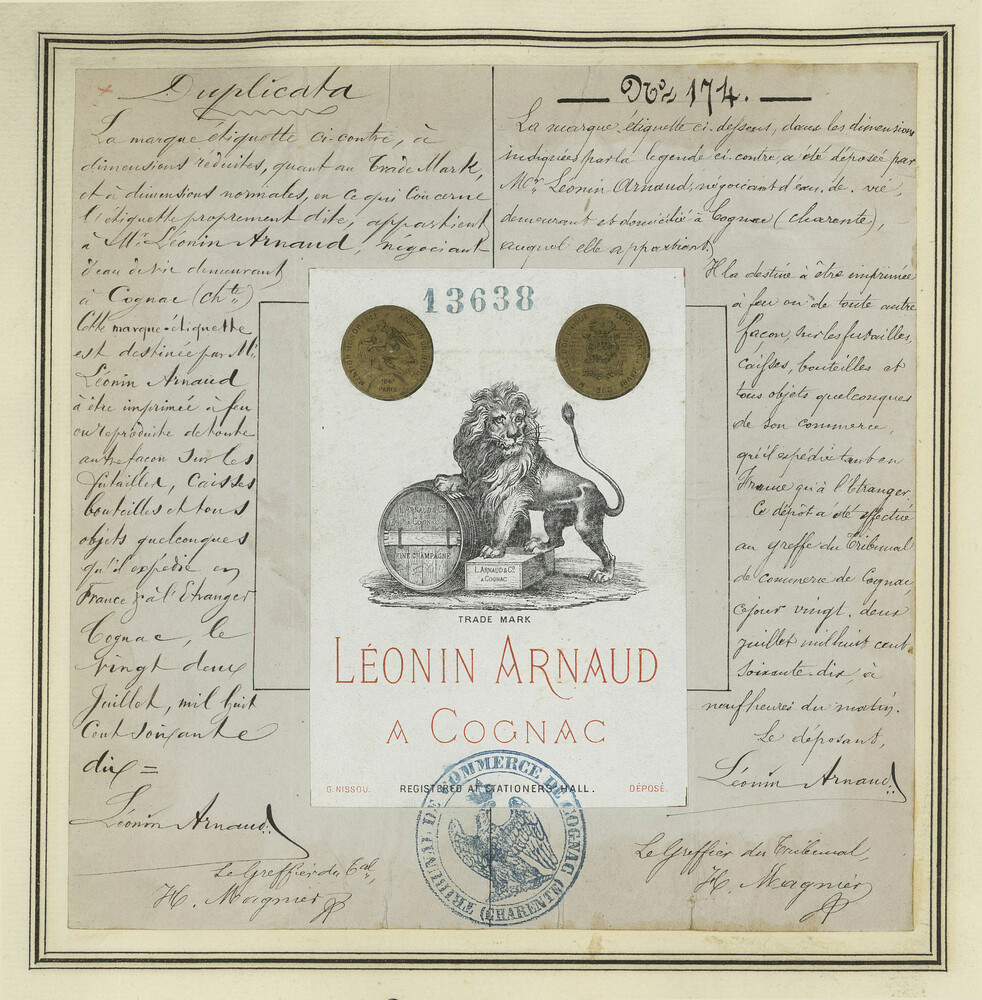 Duplicata
La marque étiquette ci-contre, à
dimensions réduites, quant au Trade Mark,
et à dimensions normales, en ce qui concerne
l'étiquette proprement dite, appartient
à Mr. Léonin Arnaud, négociant
d'eau de vie demeurant
à Cognac (chte)
Cette marque-étiquette
est destinée par Mr.
Léonin Arnaud
à être imprimée à feu
ou reproduite de toute
autre façon sur les
futailles, caisses
bouteilles et tous
objets quelconques
qu'il expédie en
France & à l'Etranger
Cognac, le
vingt deux
Juillet, mil huit
Cent soixante
dix =
Léonin Arnaud
Le Greffier du Tal,
H. Magnier
No 174.
La marque étiquette ci-dessous, dans les dimensions
indiquées par la légende ci-contre, a été déposée par
Mr. Léonin Arnaud, négociant d'eau-de-vie,
demeurant et domicilié à Cognac (Charente),
auquel elle appartient.
Il la destine à être imprimée
à feu ou de toute autre
façon, sur les futailles,
caisses, bouteilles et
tous objets quelconques
de son commerce,
qu'il expédie tant en
France qu'à l'Etranger.
Ce dépôt a été effectué
au greffe du Tribunal
de commerce de Cognac,
ce jour vingt-deux
juillet mil huit cent
soixante-dix, à
neuf heures du matin.
Le déposant,
Léonin Arnaud
Le Greffier du Tribunal,
H. Magnier
13638
PARIS
L. ARNAUD & Co
A COGNAC
FINE CHAMPAGNE
L. ARNAUD & Co
A COGNAC
TRADE MARK
LÉONIN ARNAUD
A COGNAC
G. NISSOU. REGISTERED AT STATIONERS' HALL. DÉPOSÉ.
TRIBUNAL DE COMMERCE DE COGNAC
(CHARENTE)